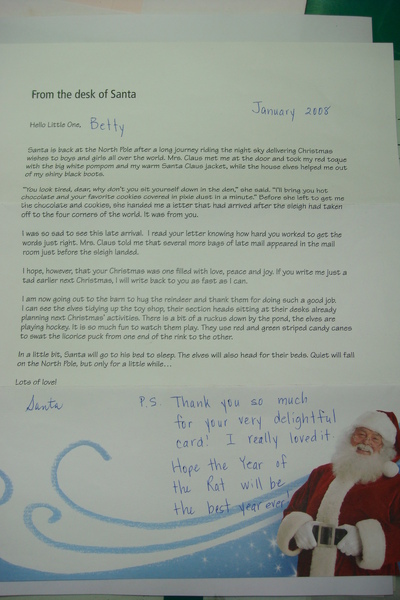 From the desk of Santa
January 2008
Hello Little One, Betty
Santa is back at the North Pole after a long journey riding the night sky delivering Christmas
wishes to boys and girls all over the world. Mrs. Claus met me at the door and took my red toque
with the big white pompom and my warm Santa Claus jacket, while the house elves helped me out
of my shiny black boots.
"You look tired, dear, why don't you sit yourself down in the den," she said. "I'll bring you hot
chocolate and your favorite cookies covered in pixie dust in a minute." Before she left to get me
the chocolate and cookies, she handed me a letter that had arrived after the sleigh had taken
off to the four corners of the world. It was from you.
I was so sad to see this late arrival. I read your letter knowing how hard you worked to get the
words just right. Mrs. Claus told me that several more bags of late mail appeared in the mail
room just before the sleigh landed.
I hope, however, that your Christmas was one filled with love, peace and joy. If you write me just a
tad earlier next Christmas, I will write back to you as fast as I can.
I am now going out to the barn to hug the reindeer and thank them for doing such a good job.
I can see the elves tidying up the toy shop, their section heads sitting at their desks already
planning next Christmas' activities. There is a bit of a ruckus down by the pond, the elves are
playing hockey. It is so much fun to watch them play. They use red and green striped candy canes
to swat the licorice puck from one end of the rink to the other.
In a little bit, Santa will go to his bed to sleep. The elves will also head for their beds. Quiet will fall
on the North Pole, but only for a little while...
Lots of love!
Santa
P.S. Thank you so much
for your very delightful
card! I really loved it
Hope the Year of
the Rat will be
the best year ever!